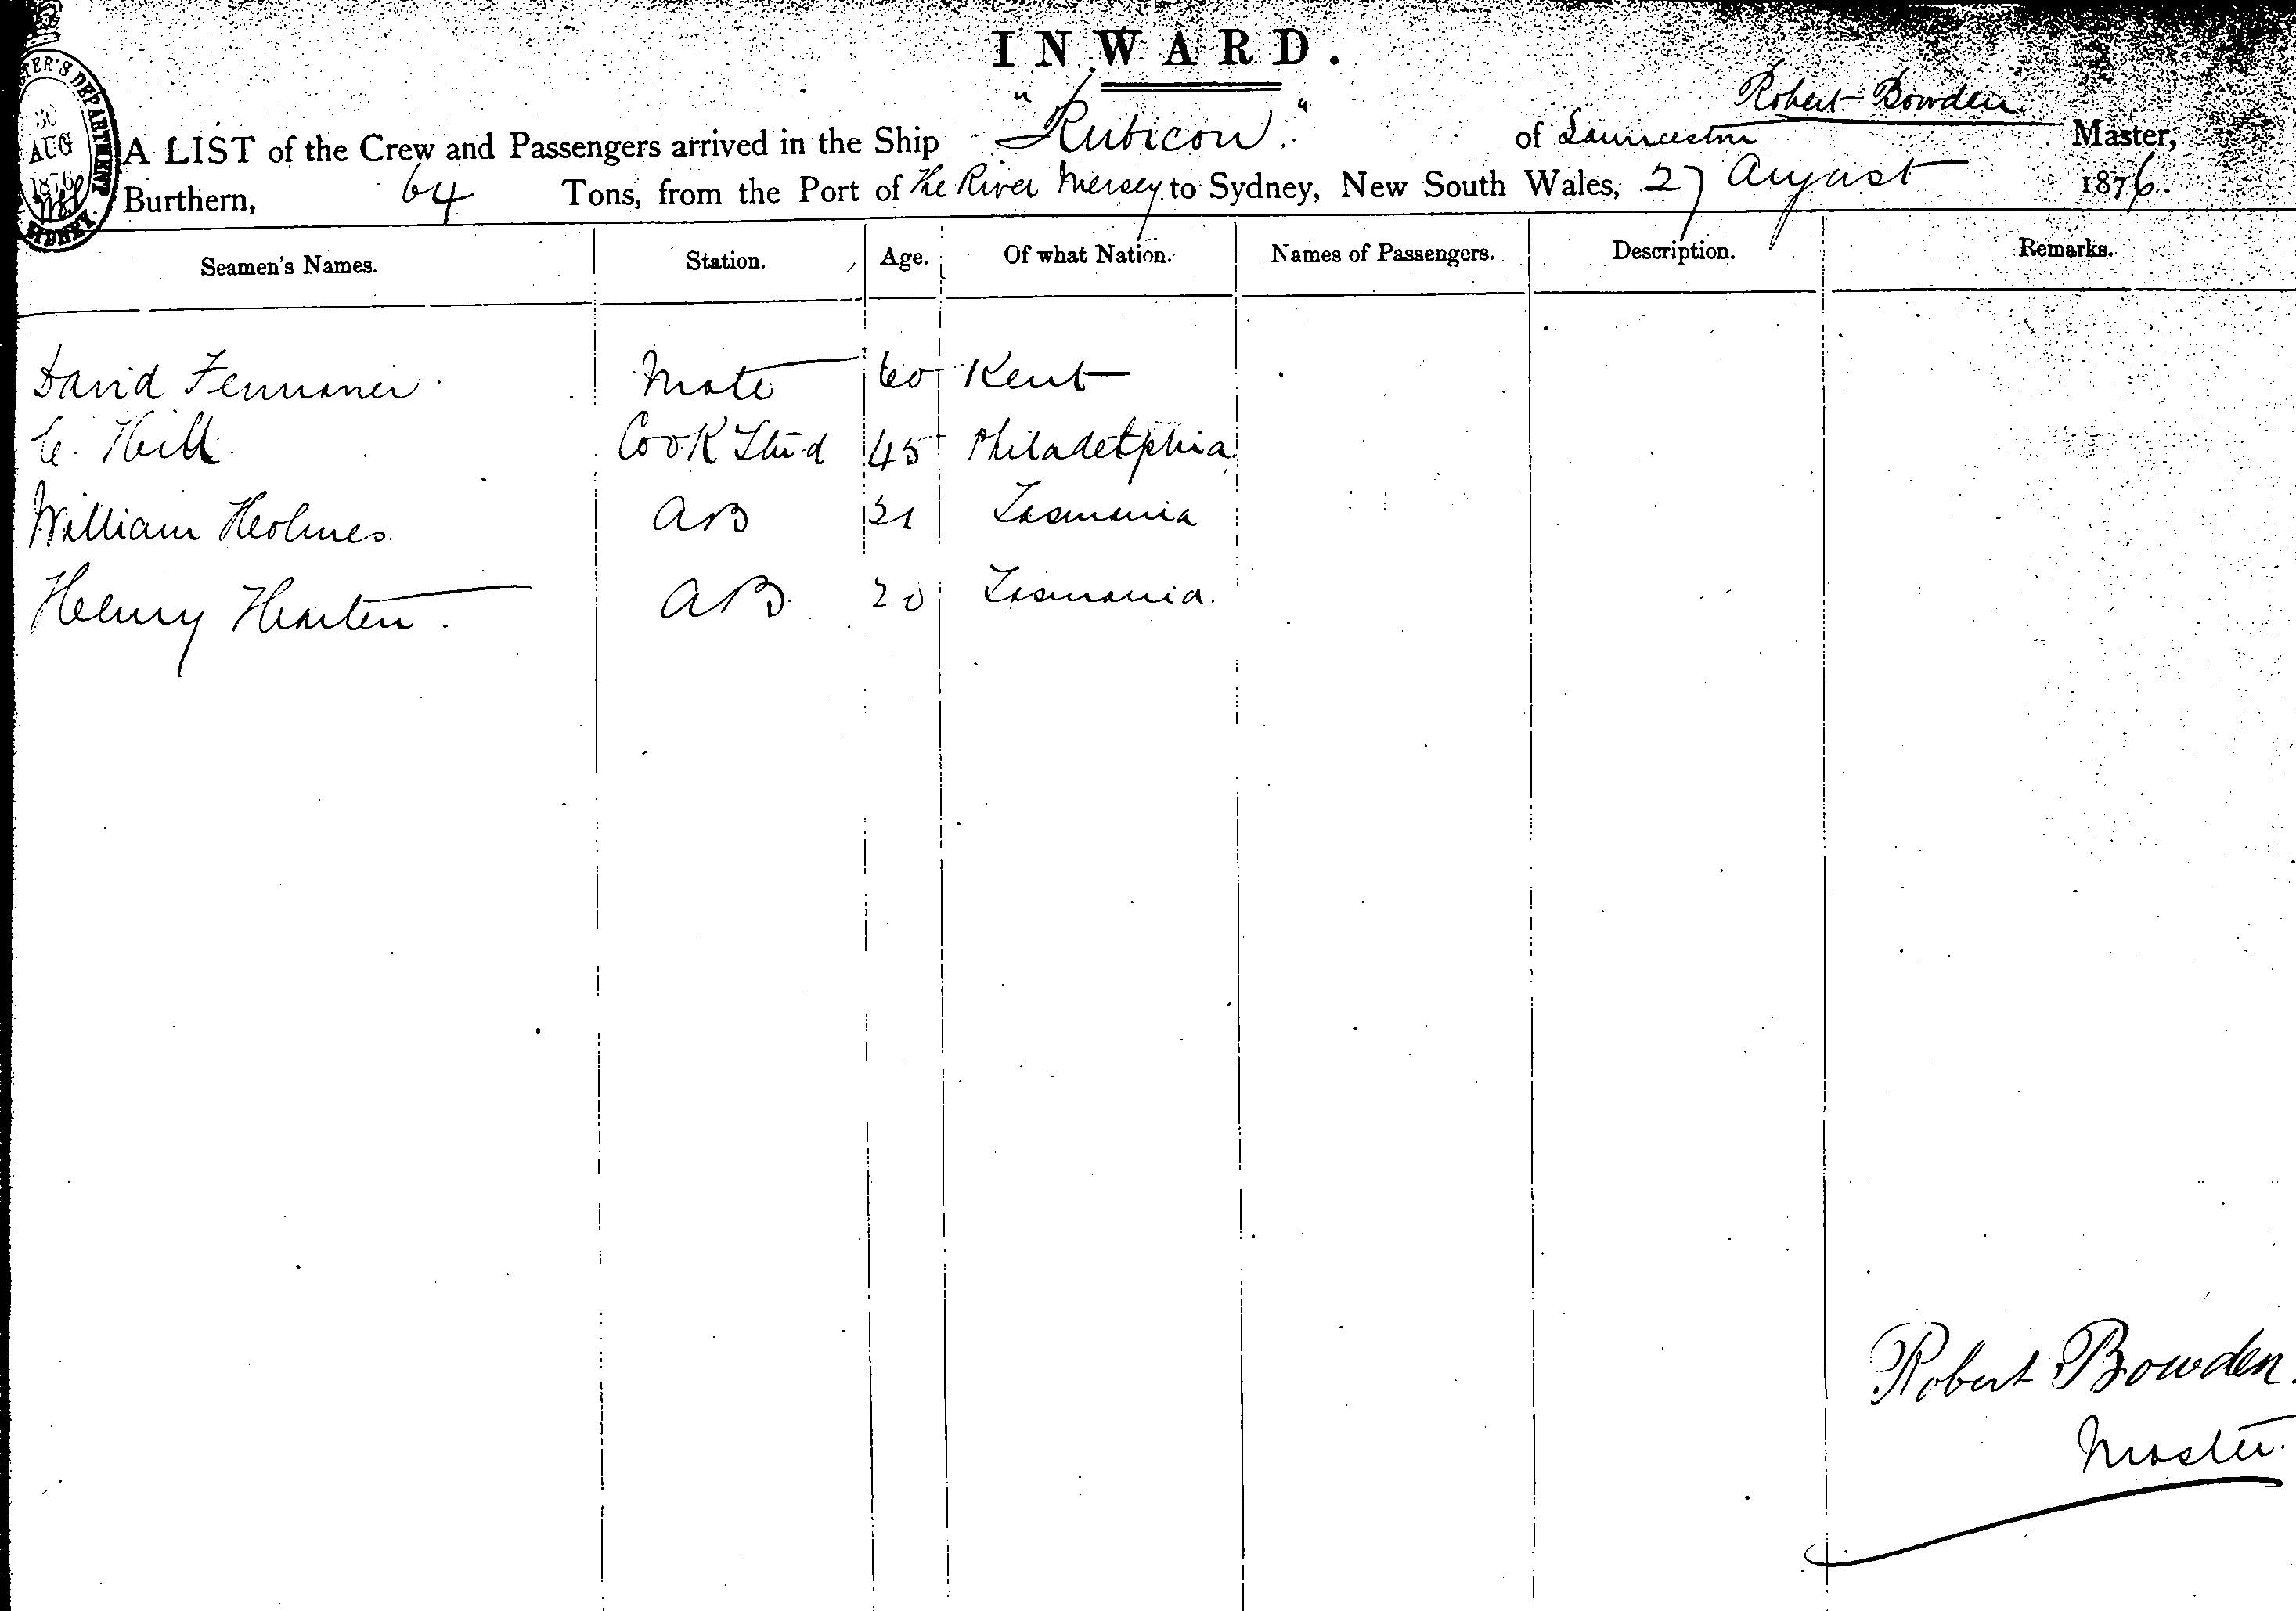 INWARD.
Robert Bowden
A LIST of the Crew and Passengers arrived in the Ship "Rubicon" of Launceston Master,
Burthern, 64 Tons, from the Port of The River Mersey to Sydney, New South Wales, 27 August 1876.
DEPARTMENT
AUG
1876
SYDNEY.
Seamen's Names. Station. Age. Of what Nation. Names of Passengers. Description. Remarks.
David Mate 60 Kent
Hill Cook Stu-d 45 Philadelphia
William Holmes AB 21 Tasmania
Henry AB 20 Tasmania.
Robert Bowden.
Master.